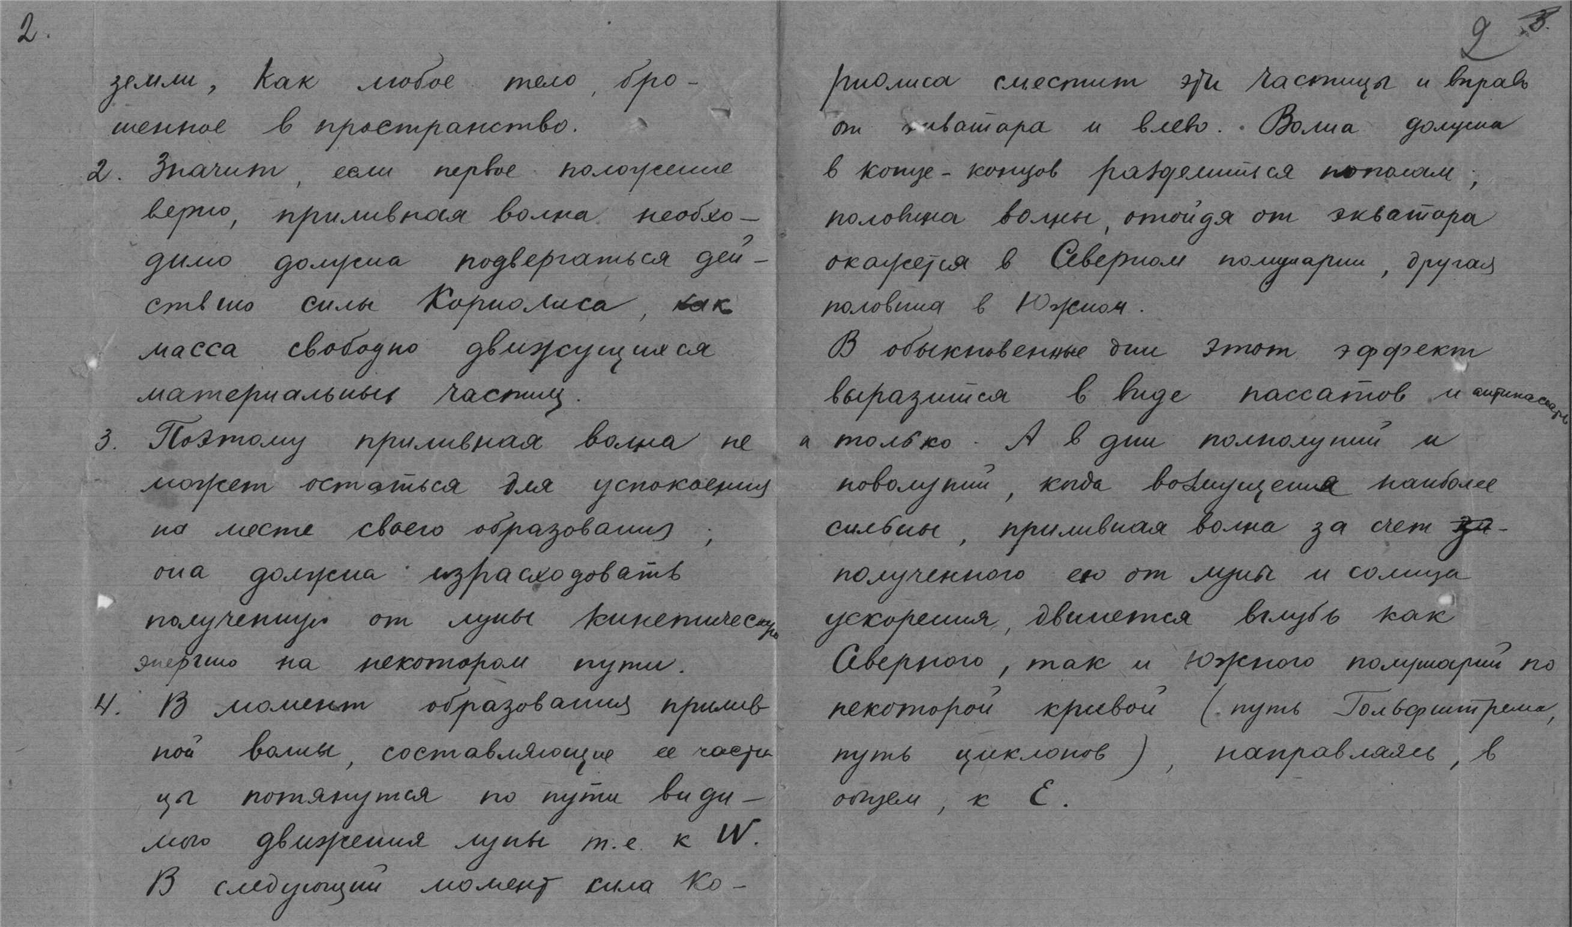 2.
земли, как любое тело, бро-
шенное в пространство.
2. Значит, если первое положение
верно, приливная волна необхо-
димо должна подвергаться дей-
ствию силы Кориолиса, как
масса свободно движущихся
материальных частиц.
3. Поэтому приливная волна не
может остаться для успокоения
на месте своего образования;
она должна израсходовать
полученную от луны кинетическую
энергию на некотором пути.
4. В момент образования прилив
ной волны, составляющие ее части
цы потянутся по пути види-
мого движения луны т.е. к W.
В следующий момент сила Ко-
2 3.
риолиса сместит эти частицы и вправо
от экватора и влево. Волна должна
в конце-концов разделиться пополам;
половина волны, отойдя от экватора
окажется в Северном полушарии, другая
половина в Южном.
В обыкновенные дни этот эффект
выразится в виде пассатов и антипассатов
и только. А в дни полнолуний и
новолуний, когда возмущения наиболее
сильны, приливная волна за счет за-
полученного ею от луны и солнца
ускорения, двинется вглубь как
Северного, так и Южного полушарий по
некоторой кривой (путь Гольфштрема,
путь циклонов), направляясь, в
общем, к E.